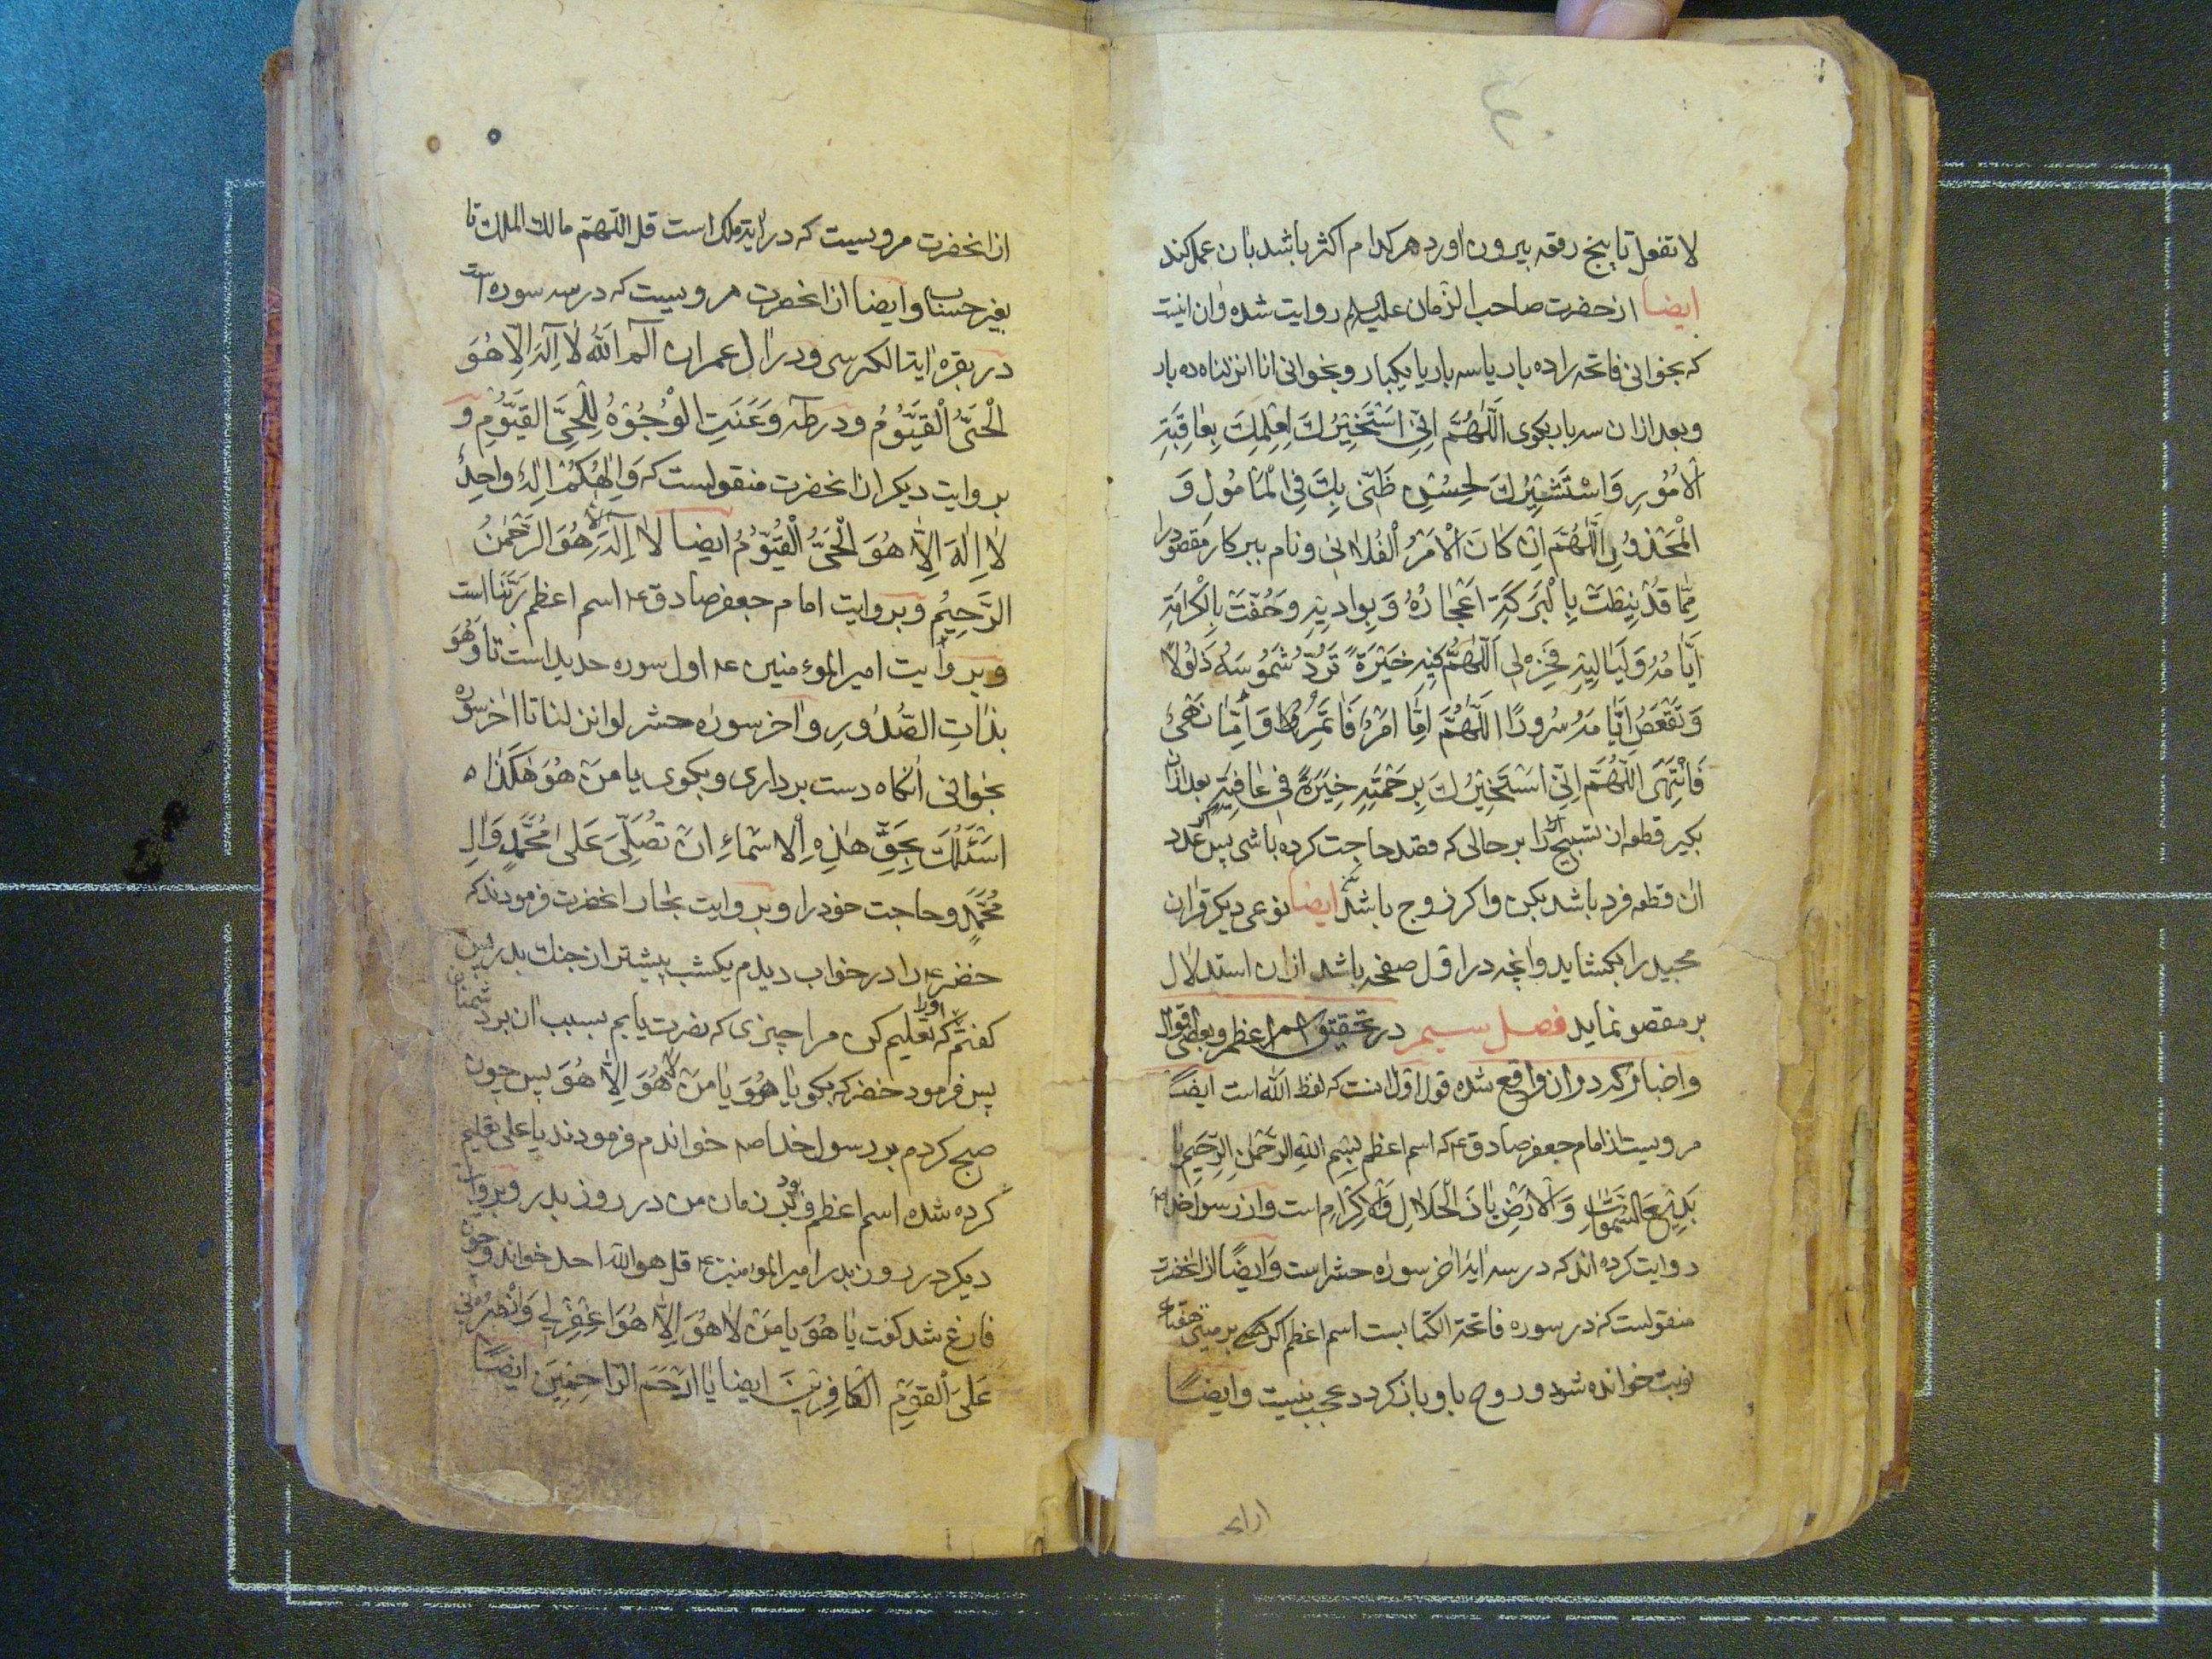 لا تفعل تا پنج رقعه بیرون اورد هر کدام اکثر باشد بان عمل کند
ایضا از حضرت صاحب الزمان علیه السلام روایت شده و ان اینست
که بخوانی فاتحه را ده بار یا سه بار یا یکبار و بخوانی انا انزلناه ده بار
و بعد از ان سه بار بکوی اَللّٰهُمَّ اِنّی اَسْتَخیرُكَ لِعِلْمِكَ بِعاقِبَةِ
الْاُمُورِ وَاسْتَشیرُكَ لِحُسْنِ ظَنّی بِكَ فِی الْمَأمُولِ وَ
الْمَحْذُورِ اَللّٰهُمَّ اِنْ كانَ الْاَمْرُ الْفُلانی و نام ببر کار مقصود را
مِمّا قَدْ نیطَتْ بِالْبَرَكَةِ اَعْجازُهُ وَ بَوادیهِ وَحُفَّتْ بِالْكَرامَةِ
اَیّامُهُ وَلَیالیهِ فَخِرْ لی اَللّٰهُمَّ فیهِ خِیَرَةً تَرُدُّ شُمُوسَهُ ذَلُولاً
وَتَقْعَصُ اَیّامَهُ سُرُورًا اَللّٰهُمَّ اِمّا اَمْرٌ فَأتَمِرُ وَاِمّا نَهْیٌ
فَاَنْتَهی اَللّٰهُمَّ اِنّی اَسْتَخیرُكَ بِرَحْمَتِهِ خِیَرَةً فی عافِیَةٍ بعد از ان
بکیر قطعه از تسبیح را بر حالی که قصد حاجت کرده باشی پس اگر عدد
ان قطعه فرد باشد بکن و اکر زوج باشد مکن ایضا نوعی دیکر قران
مجید را بکشاید و انچه در اول صفحه باشد از ان استدلال
بر مقصو نماید فصل سیم در تحقیق اسم اعظم و بعضی اقوال
و اخبار که در ان واقع شده قول اول انست که لفظ الله است ایضاً
مرویست از امام جعفر صادق ع که اسم اعظم بِسْمِ اللهِ الرَّحْمٰنِ الرَّحیمِ یا
بَدیعَ السَّمٰواتِ وَالْاَرْضِ یا ذَا الْجَلالِ وَالْاِكْرامِ است و از رسول خدا ص
روایت کرده اند که در سه ایه اخر سوره حشر است وَایضًا از انحضرت
منقولست که در سوره فاتحة الکتاب است اسم اعظم اکر کسی بر میتی هفتاد
نوبت خوانده شود و روح باو باز کردد عجب نیست وایضًا
از انحضرت مرویست که در ایة ملک است قل اللّهمّ مالك الملك تا
بغیر حساب و ایضا از انحضرت مرویست که در سه سوره است
در بقره ایة الکرسی و در ال عمران الٓمٓ اَللهُ لا اِلٰهَ اِلّا هُوَ
الْحَیُّ الْقَیُّومُ و در طه وَعَنَتِ الْوُجُوهُ لِلْحَیِّ الْقَیُّومِ و
بروایت دیکر از انحضرت منقولست که وَاِلٰهُكُمْ اِلٰهٌ واحِدٌ
لا اِلٰهَ اِلّا هُوَ الْحَیُّ الْقَیُّومُ ایضا لا اِلٰهَ اِلّا هُوَ الرَّحْمٰنُ
الرَّحیمُ و بروایت امام جعفر صادق ع اسم اعظم رَبَّنا است
و بروایت امیر المؤمنین ع اول سوره حدید است تا وَهُوَ
بذاتِ الصُّدُورِ و اخر سوره حشر لو انزلنا تا اخر سوره
بخوانی انکاه دست برداری و بکوی یا مَنْ هُوَ هٰكَذا
اَسْئَلُكَ بِحَقِّ هٰذِهِ الْاَسْماءِ اَنْ تُصَلِّیَ عَلٰی مُحَمَّدٍ وَالِ
مُحَمَّدٍ و حاجت خود را و بروایت بحار انحضرت فرمودند که
حضر ع را در خواب دیدم یکشب پیشتر از جنك بدر پس
کفتم که او را تعلیم کن مرا چیزی که نصرت یابم بسبب ان بر دشمنان
پس فرمود خضر که بکو یا هُوَ یا مَنْ لا هُوَ اِلّا هُوَ پس چون
صبح کردم بر رسول خدا صه خواندم فرمودند یا علی تعلیم
کرده شده اسم اعظم و بود بر زبان من در روز بدر و بروایت
دیکر در روز بدر امیر المؤمنین ع قل هو الله احد خواند و چون
فارغ شد کفت یا هُوَ یا مَنْ لا هُوَ اِلّا هُوَ اغْفِرْ لی وَانْصُرْنی
عَلَی الْقَوْمِ الْكافِرینَ ایضا یا اَرْحَمَ الرّاحِمینَ ایضًا